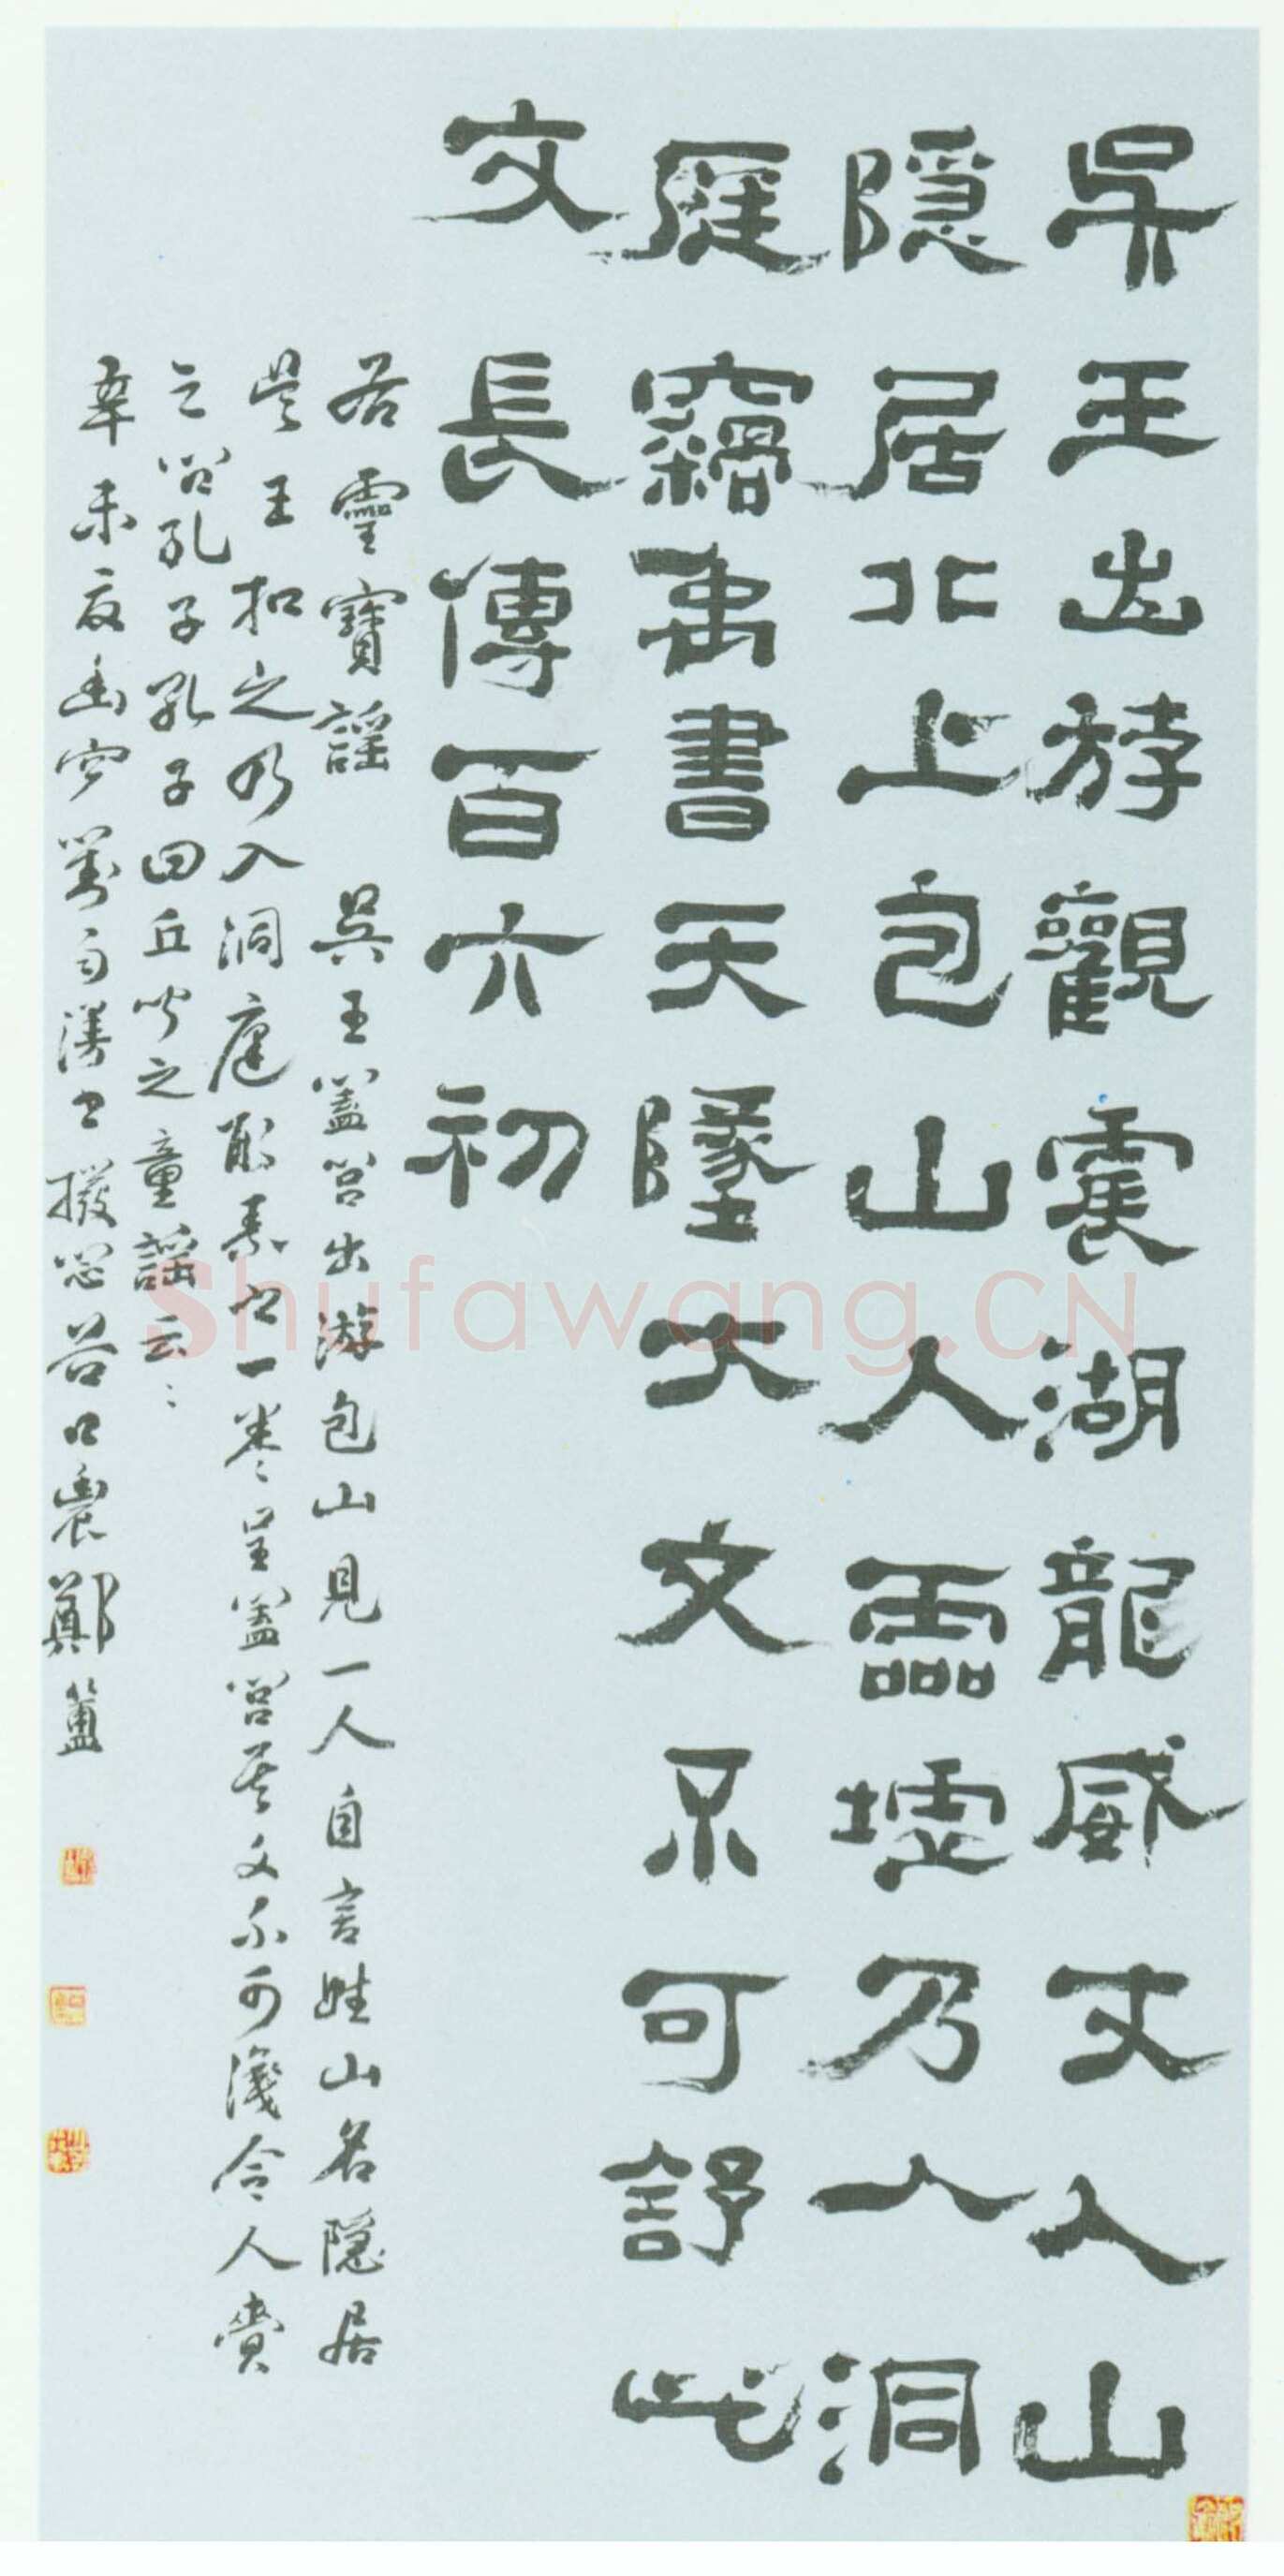 吳王出游觀震湖龍威丈人山
隱居北上包山人靈墟乃入洞
庭竊禹書天墜大文不可舒此
文長傳百六初
右靈寶謠 吳王蓋召出游包山見一人自言姓山名隱居
吴王扣之乃入洞庭取素書一卷呈蓋召其文不可識令人賷
之問孔子孔子曰丘聞之童謠云云
辛未夏齋對雨漫書撥悶谷口農鄭簠
Shufawang.CN